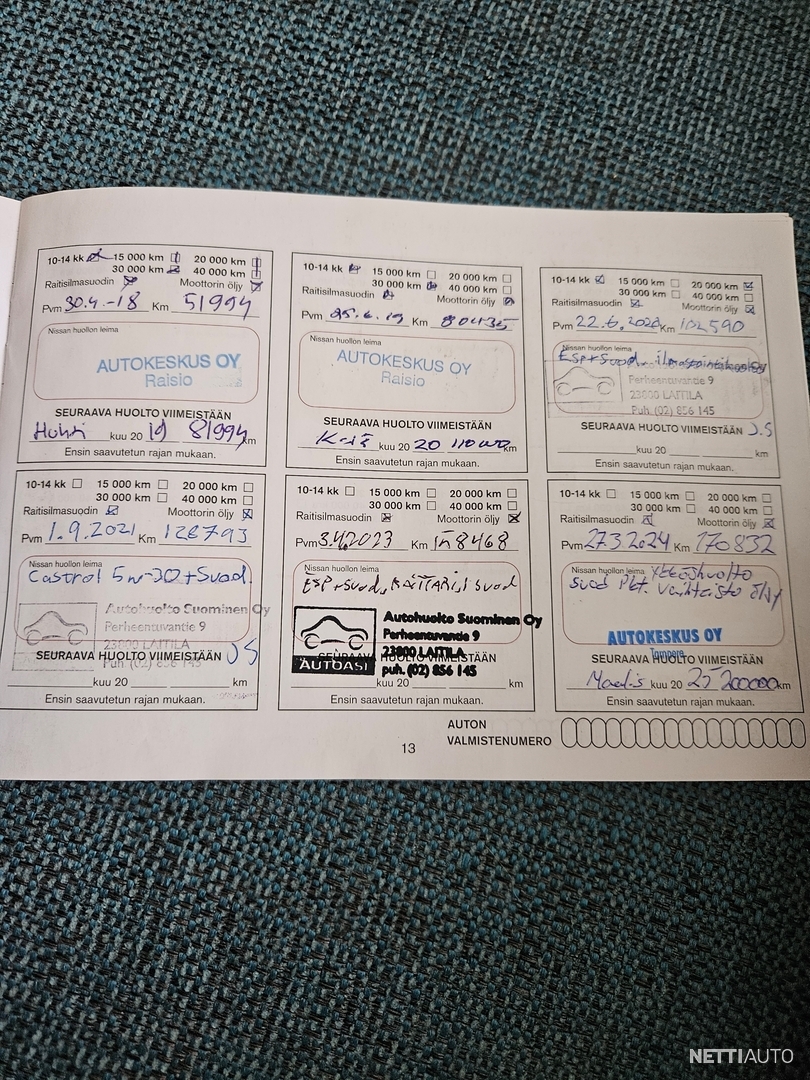 10-14 kk 15 000 km 20 000 km
30 000 km 40 000 km
Raitisilmasuodin Moottorin öljy
Pvm 30.4.-18 Km 51994
Nissan huollon leima
AUTOKESKUS OY
Raisio
SEURAAVA HUOLTO VIIMEISTÄÄN
Huhti kuu 20 19 81994 km
Ensin saavutetun rajan mukaan.
10-14 kk 15 000 km 20 000 km
30 000 km 40 000 km
Raitisilmasuodin Moottorin öljy
Pvm 25.6.19 Km 80435
Nissan huollon leima
AUTOKESKUS OY
Raisio
SEURAAVA HUOLTO VIIMEISTÄÄN
kuu 20 20 110000 km
Ensin saavutetun rajan mukaan.
10-14 kk 15 000 km 20 000 km
30 000 km 40 000 km
Raitisilmasuodin Moottorin öljy
Pvm 22.6.2020 Km 102590
Nissan huollon leima
ESP+Suod.
Perheentuvantie 9
23800 LAITILA
Puh. (02) 856 145
SEURAAVA HUOLTO VIIMEISTÄÄN J.S
kuu 20 km
Ensin saavutetun rajan mukaan.
10-14 kk 15 000 km 20 000 km
30 000 km 40 000 km
Raitisilmasuodin Moottorin öljy
Pvm 1.9.2021 Km 128793
Nissan huollon leima
Castrol 5w-30+Suod.
Autohuolto Suominen Oy
Perheentuvantie 9
23800 LAITILA
Puh. (02) 856 145
SEURAAVA HUOLTO VIIMEISTÄÄN JS
kuu 20 km
Ensin saavutetun rajan mukaan.
10-14 kk 15 000 km 20 000 km
30 000 km 40 000 km
Raitisilmasuodin Moottorin öljy
Pvm 3.4.2023 Km 158468
Nissan huollon leima
ESP+Suod., suod
Autohuolto Suominen Oy
Perheentuvantie 9
23800 LAITILA
puh. (02) 856 145
AUTOASI
SEURAAVA HUOLTO VIIMEISTÄÄN
kuu 20 km
Ensin saavutetun rajan mukaan.
10-14 kk 15 000 km 20 000 km
30 000 km 40 000 km
Raitisilmasuodin Moottorin öljy
Pvm 27.3.2024 Km 170832
Nissan huollon leima
Yttöshuolto
suod Pkt. Vaihteisto öljy
AUTOKESKUS OY
Tampere
SEURAAVA HUOLTO VIIMEISTÄÄN
Maalis kuu 20 25 200000 km
Ensin saavutetun rajan mukaan.
AUTON
VALMISTENUMERO
13
NETTIAUTO